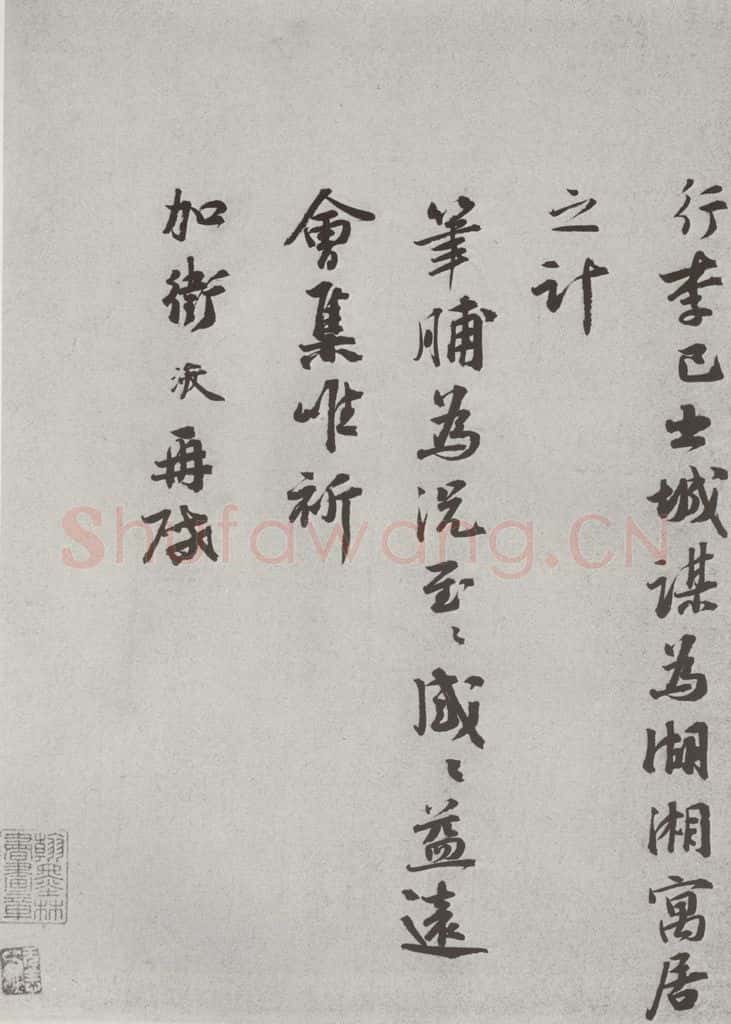 行李已出城謀為湖湘寓居
之計
筆脯為況至〻感〻益遠
會集唯祈
加衛 再啟
翰墨林
書畫章
Shufawang.CN